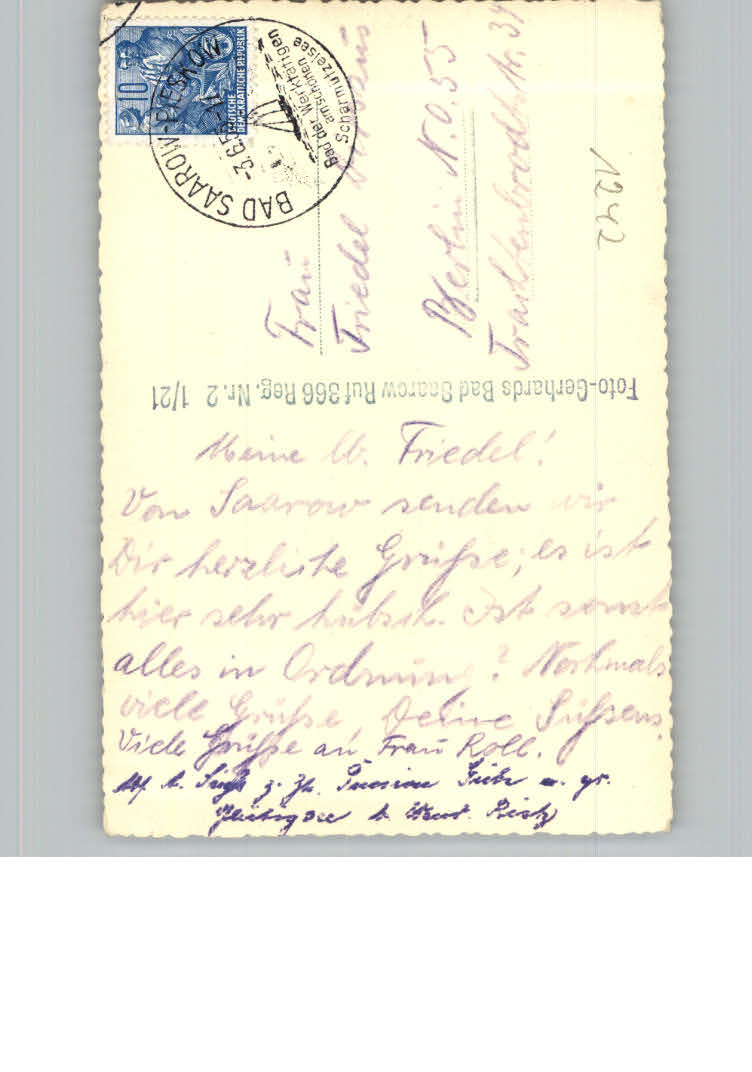 10
DEUTSCHE
DEMOKRATISCHE REPUBLIK
BAD SAAROW-PIESKOW
-3.6.5
Bad der Werktätigen
am schönen
Scharmützelsee
Frau
Friedel
Berlin N.O.55
Trachtenbrodtstr. 34
1242
Foto-Gerhards Bad Saarow Ruf 366 Reg. Nr. 2 1/21
Meine lb. Friedel!
Von Saarow senden wir
Dir herzliche Grüße; es ist
hier sehr hübsch. Ist sonst
alles in Ordnung? Nochmals
viele Grüße Deine Süßens.
Viele Grüße an Frau Roll.
z. Zt. Pension